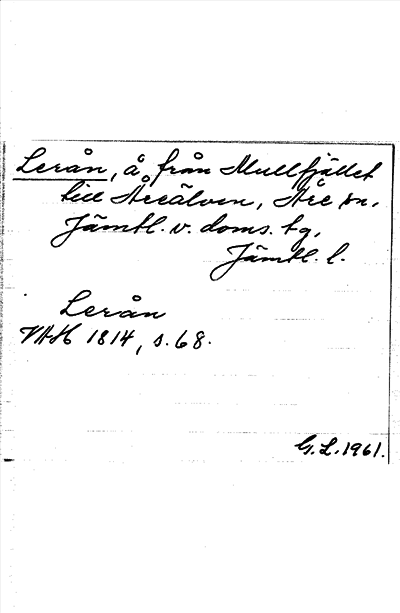 Lerån, å från Mullfjället
till Åreälven, Åre sn,
Jämtl. v. doms. tg,
Jämtl. l.
Lerån
VAH 1814, s. 68.
G. L. 1961.